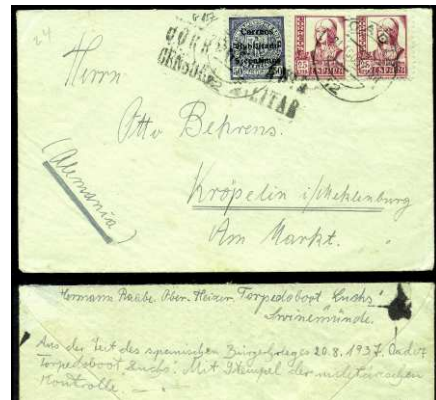 24
Correos
CENSURA
MILITAR
Herrn
Otto Behrens.
(Alemania)
Kröpelin i/Mecklenburg
Am Markt.
Hermann Raabe Ober-Heizer Torpedoboot "Luchs"
Swinemünde.
Aus der Zeit des spanischen Bürgerkrieges 20.8.1937.
Torpedoboot Luchs. Mit Stempel der militärischen
Kontrolle.